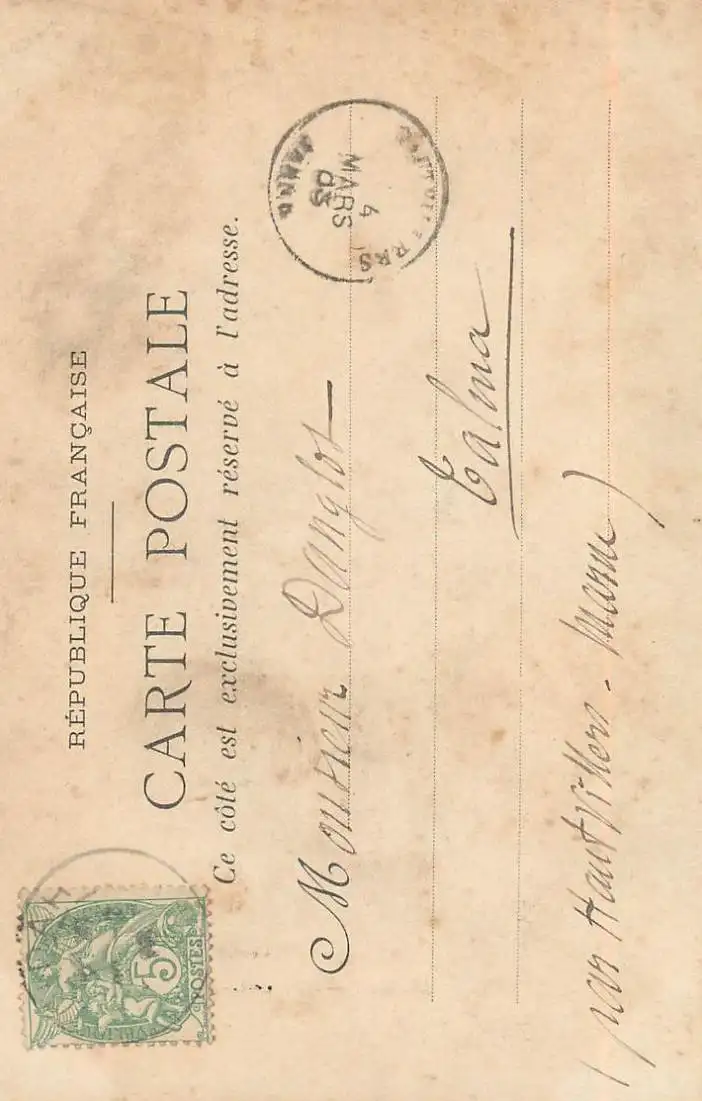 RÉPUBLIQUE FRANÇAISE
CARTE POSTALE
Ce côté est exclusivement réservé à l'adresse.
5
POSTES
4
MARS
03
MARNE
Monsieur Danglot
Talma
(par Hautvillers - Marne)